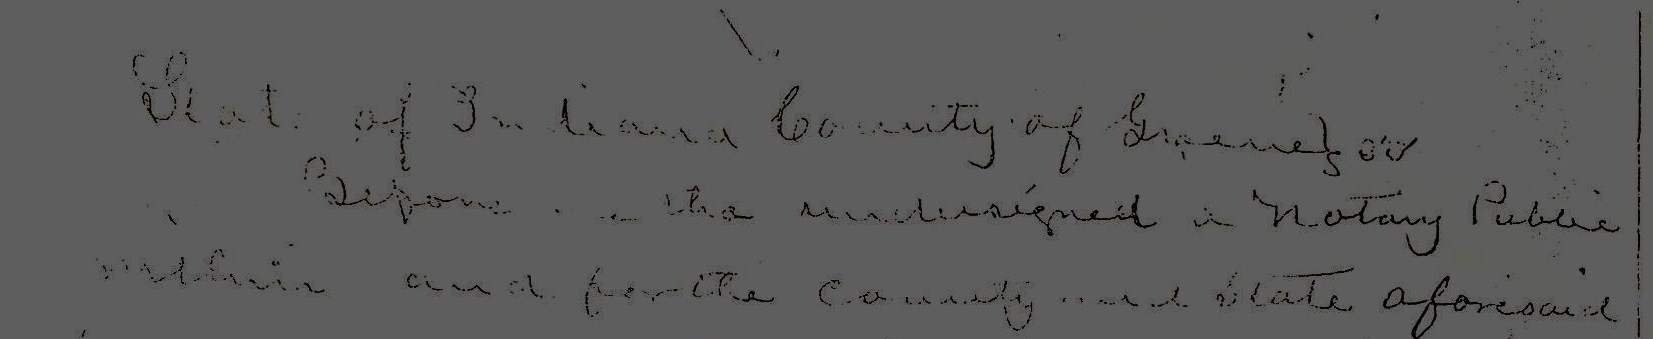 State of Indiana County of Greene } ss
Before me the undersigned a Notary Public
within and for the County and State aforesaid